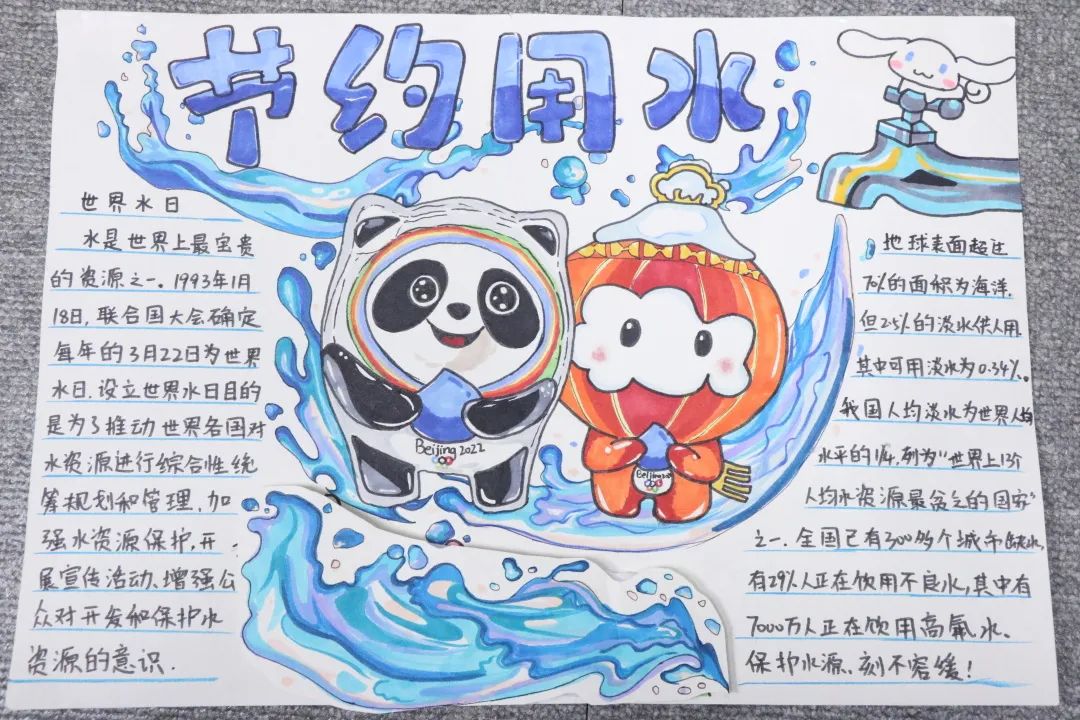 节约用水
世界水日
水是世界上最宝贵
的资源之一。1993年1月
18日,联合国大会确定
每年的3月22日为世界
水日.设立世界水日目的
是为了推动世界各国对
水资源进行综合性统
筹规划和管理,加
强水资源保护,开
展宣传活动、增强公
众对开发和保护水
资源的意识.
Beijing 2022
Beijing 2022
地球表面超过
70%的面积为海洋.
但2.5%的淡水供人用
其中可用淡水为0.34%。
我国人均淡水为世界人均
水平的1/4,列为"世界上13个
人均水资源最贫乏的国家"
之一.全国已有300多个城市缺水,
有29%人正在饮用不良水,其中有
7000万人正在饮用高氟水.
保护水源、刻不容缓!